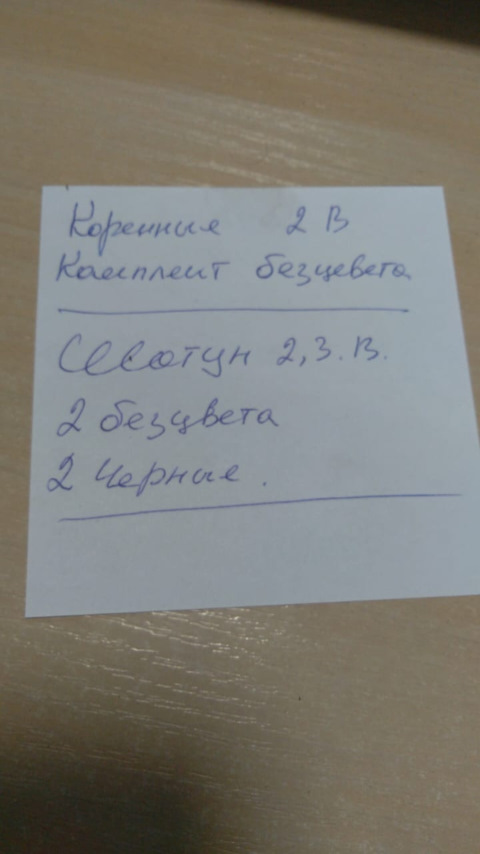 Коренные 2 В
Комплект безцевета
Шатун 2,3.В.
2 безцвета
2 Черные.